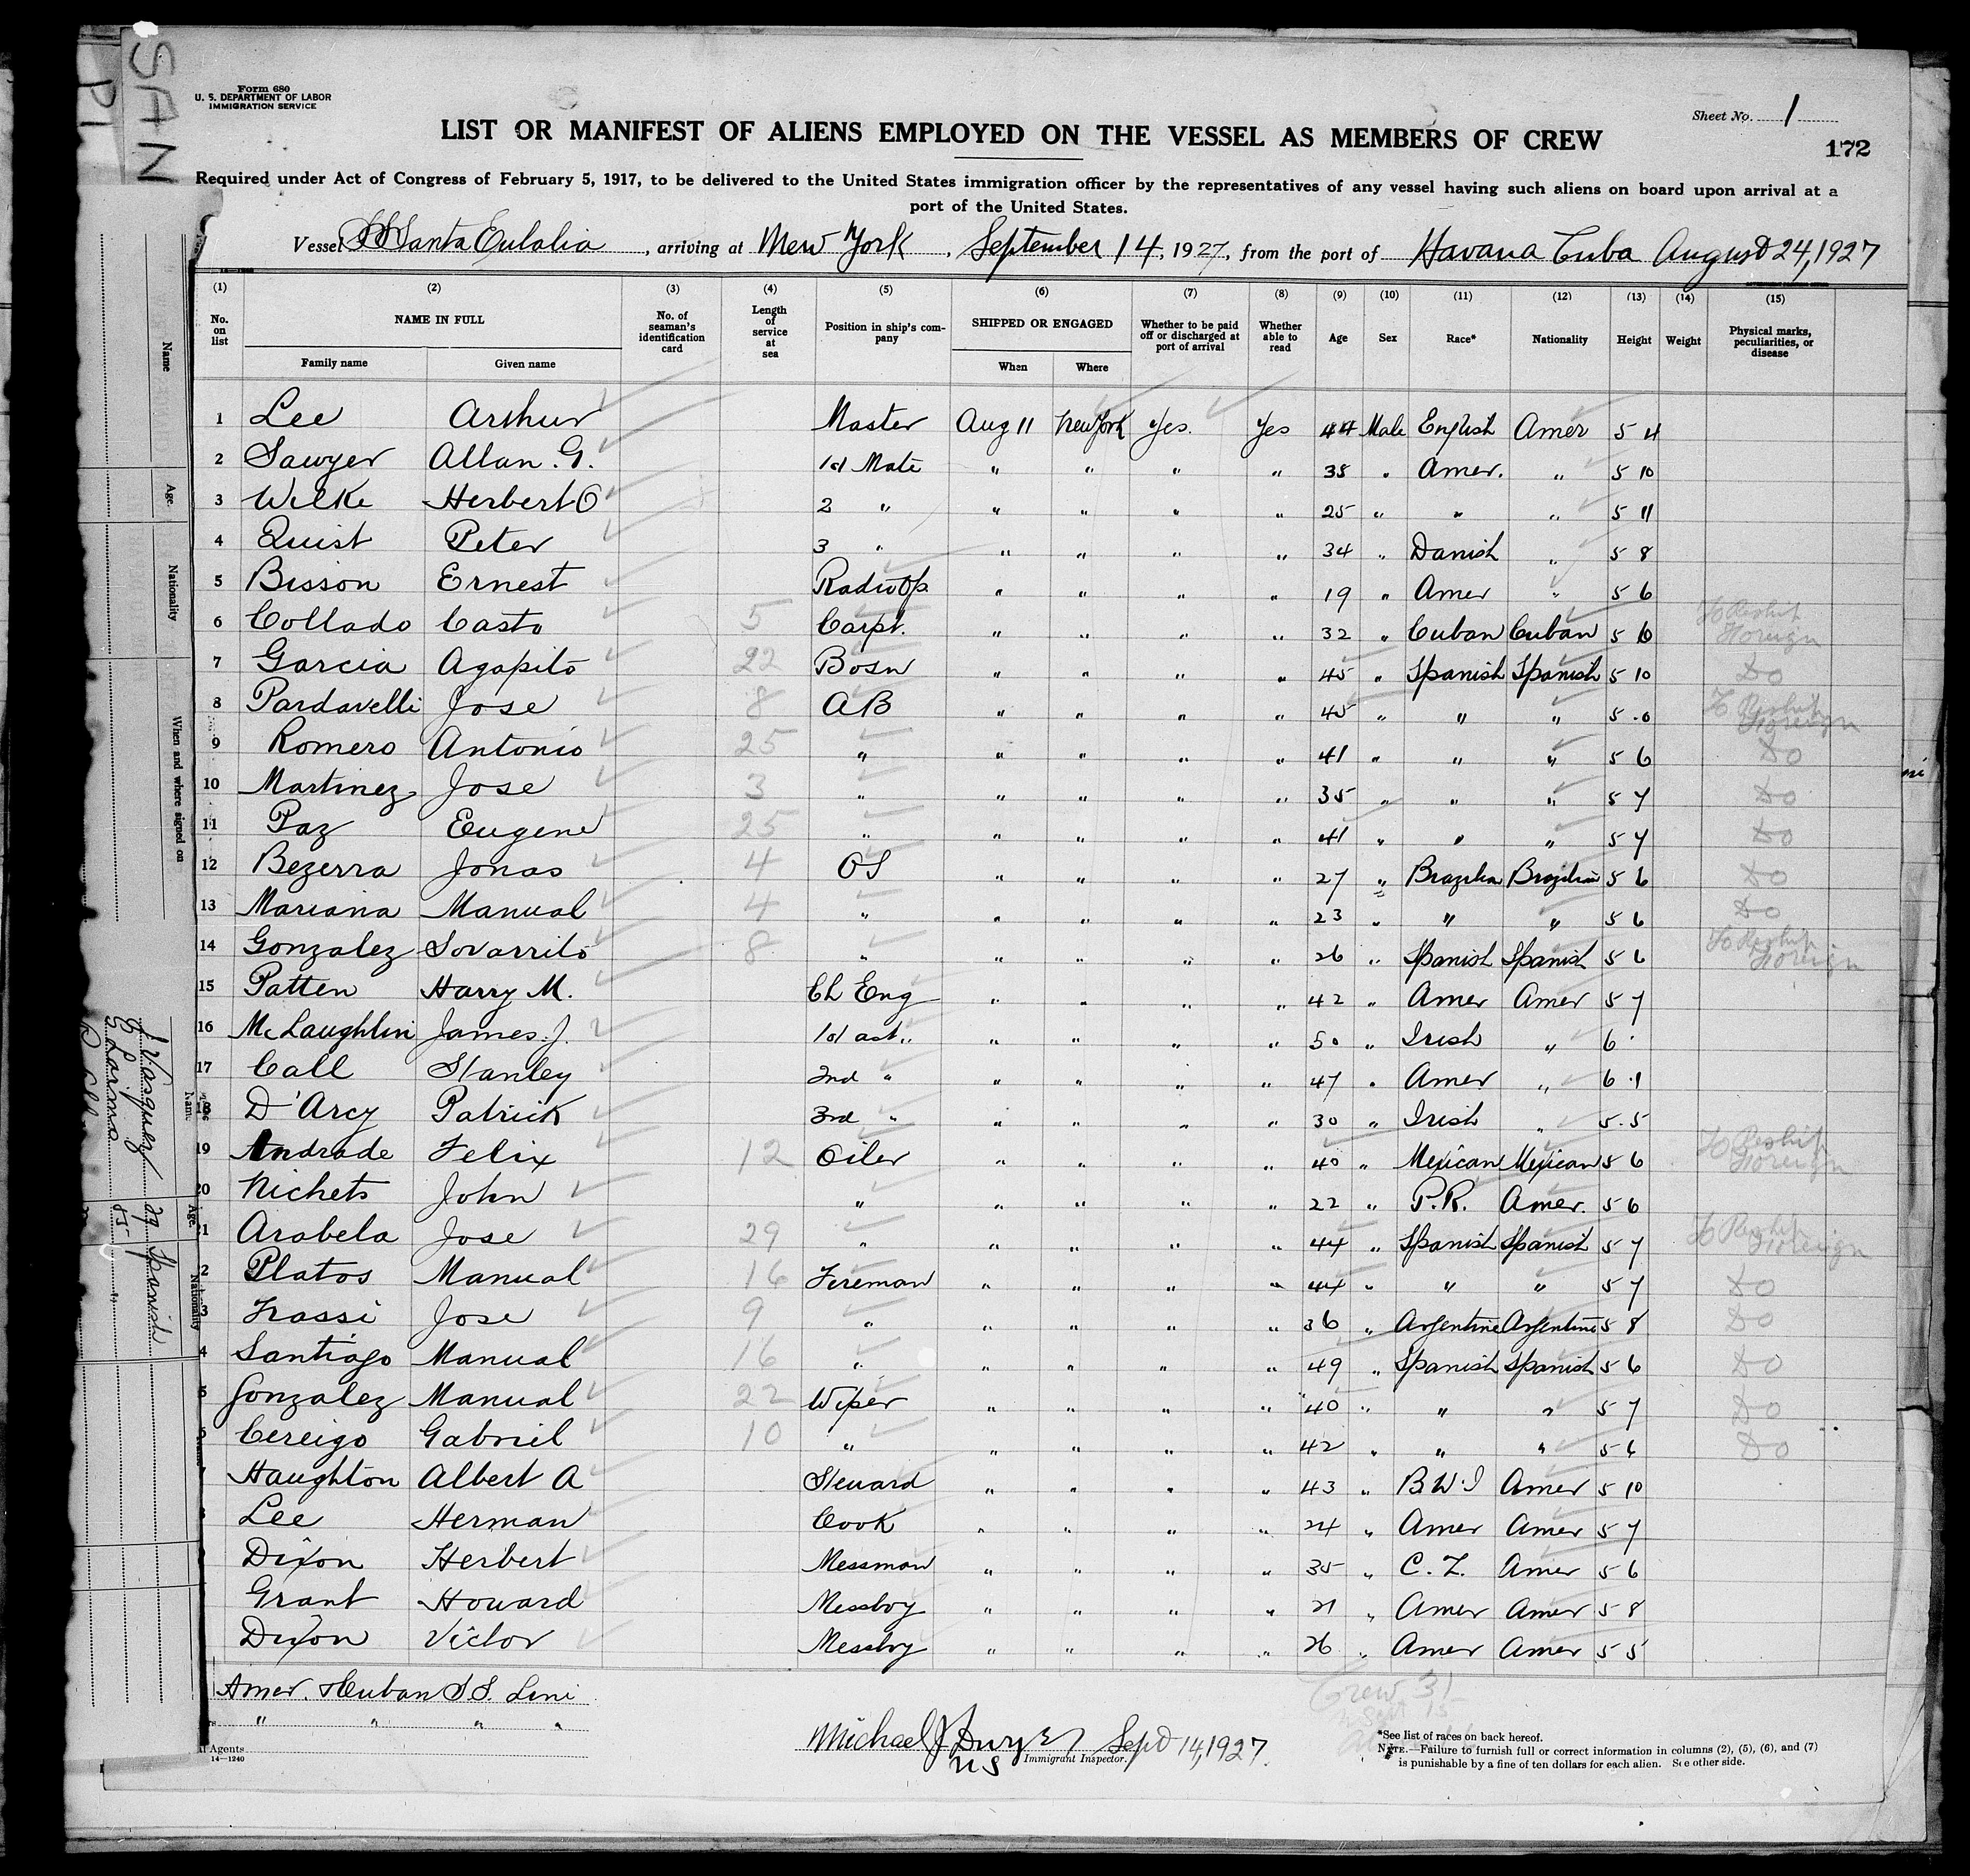 SAN
PI
Form 680
U. S. DEPARTMENT OF LABOR
IMMIGRATION SERVICE
Sheet No. 1
LIST OR MANIFEST OF ALIENS EMPLOYED ON THE VESSEL AS MEMBERS OF CREW
172
Required under Act of Congress of February 5, 1917, to be delivered to the United States immigration officer by the representatives of any vessel having such aliens on board upon arrival at a
port of the United States.
Vessel SS Santa Eulalia, arriving at New York, September 14, 1927, from the port of Havana Cuba August 24, 1927
(1) (2) (3) (4) (5) (6) (7) (8) (9) (10) (11) (12) (13) (14) (15)
No. on list NAME IN FULL No. of seaman's identification card Length of service at sea Position in ship's company SHIPPED OR ENGAGED Whether to be paid off or discharged at port of arrival Whether able to read Age Sex Race* Nationality Height Weight Physical marks, peculiarities, or disease
Family name Given name When Where
1 Lee Arthur Master Aug 11 New York Yes. Yes 44 Male English Amer 5 4
2 Sawyer Allan. G. 1st Mate " " " " 38 " Amer. " 5 10
3 Wilke Herbert O 2 " " " " " 25 " " " 5 11
4 Quist Peter 3 " " " " " 34 " Danish " 5 8
5 Bisson Ernest Radio Op. " " " " 19 " Amer " 5 6
6 Collado Casto 5 Carpt. " " " " 32 " Cuban Cuban 5 10 To Reship Foreign
7 Garcia Agapito 22 Bosn " " " " 45 " Spanish Spanish 5 10 Do
8 Pardavelli Jose 8 AB " " " " 45 " " " 5 .0 To Reship Foreign
9 Romero Antonio 25 " " " " " 41 " " " 5 6 Do
10 Martinez Jose 3 " " " " " 35 " " " 5 7 Do
11 Paz Eugene 25 " " " " " 41 " " " 5 7 Do
12 Bezerra Jonas 4 OS " " " " 27 " Brazilian Brazilian 5 6 Do
13 Mariana Manual 4 " " " " " 23 " " " 5 6 Do
14 Gonzalez Sovarrito 8 " " " " " 26 " Spanish Spanish 5 6 To Reship Foreign
15 Patten Harry M. Ch Eng " " " " 42 " Amer Amer 5 7
16 McLaughlin James. J. 1st ast " " " " " 50 " Irish " 6
17 Call Stanley 2nd " " " " " 47 " Amer " 6 .1
18 D'Arcy Patrick 3rd " " " " " 30 " Irish " 5.5
19 Andrade Felix 12 Oiler " " " " 40 " Mexican Mexican 5 6 To Reship Foreign
20 Nichets John " " " " " 22 " P.R. Amer. 5 6
1 Arabela Jose 29 " " " " " 44 " Spanish Spanish 5 7 To Reship Foreign
2 Platos Manual 16 Fireman " " " " 44 " " " 5 7 Do
3 Frassi Jose 9 " " " " " 36 " Argentine Argentine 5 8 Do
4 Santiago Manual 16 " " " " " 49 " Spanish Spanish 5 6 Do
5 Gonzalez Manual 22 Wiper " " " " 40 " " " 5 7 Do
Cereigo Gabriel 10 " " " " " 42 " " " 5 6 Do
Haughton Albert A Steward " " " " 43 " B W. I Amer 5 10
Lee Herman Cook " " " " 24 " Amer Amer 5 7
Dixon Herbert Messman " " " " 35 " C. Z. Amer 5 6
Grant Howard Messboy " " " " 21 " Amer Amer 5 8
Dixon Victor Messboy " " " " 26 " Amer Amer 5 5
Amer. & Cuban S S. Line
" " " "
Agents
14—1240
Crew 31
Sept 15
Michael J Dwyer Sept 14, 1927.
US Immigrant Inspector.
*See list of races on back hereof.
NOTE.—Failure to furnish full or correct information in columns (2), (5), (6), and (7)
is punishable by a fine of ten dollars for each alien. See other side.
Name
Age.
Nationality
When and where signed on
J Vasquez 29 Spanish
Name
Age.
Nationality